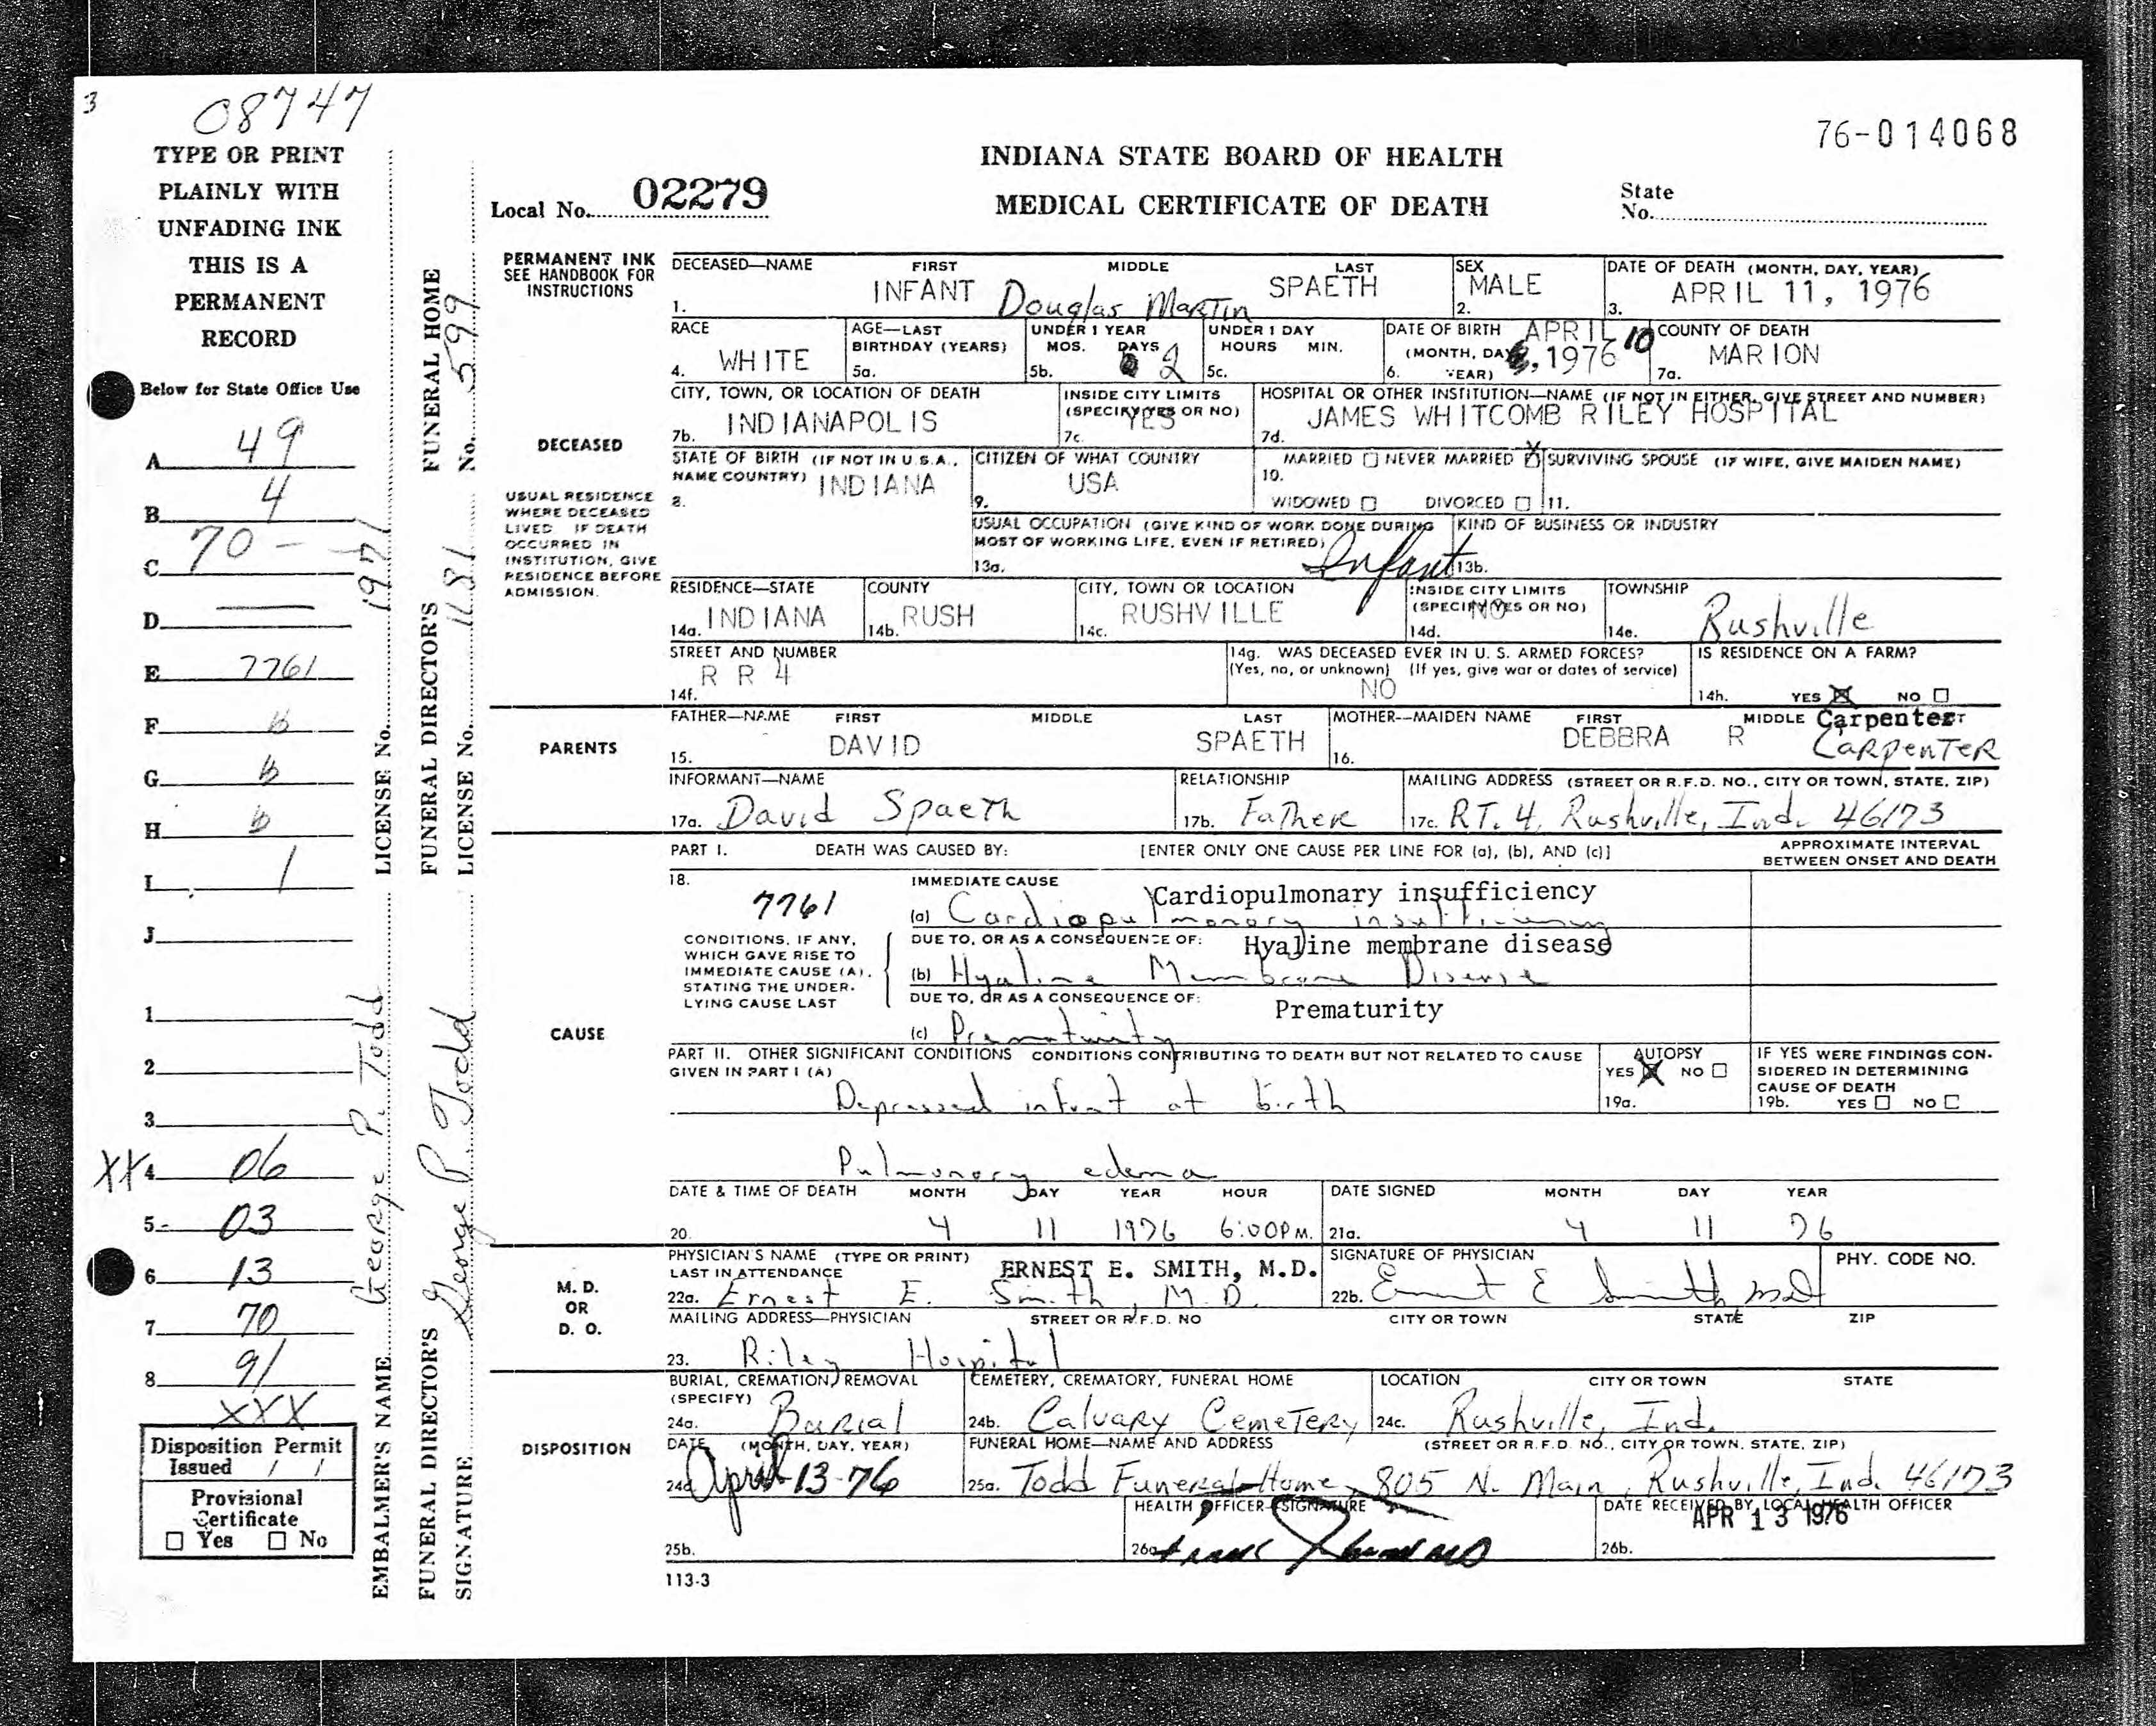 3
08747
76-014068
TYPE OR PRINT
PLAINLY WITH
UNFADING INK
THIS IS A
PERMANENT
RECORD
INDIANA STATE BOARD OF HEALTH
MEDICAL CERTIFICATE OF DEATH
Local No. 02279
State
No.
PERMANENT INK
SEE HANDBOOK FOR
INSTRUCTIONS
DECEASED—NAME FIRST MIDDLE LAST SEX DATE OF DEATH (MONTH, DAY, YEAR)
1. INFANT Douglas Martin SPAETH 2. MALE 3. APRIL 11, 1976
RACE AGE—LAST BIRTHDAY (YEARS) UNDER 1 YEAR MOS. DAYS UNDER 1 DAY HOURS MIN. DATE OF BIRTH (MONTH, DAY, YEAR) COUNTY OF DEATH
4. WHITE 5a. 5b. 2 5c. 6. APRIL 10, 1976 7a. MARION
CITY, TOWN, OR LOCATION OF DEATH INSIDE CITY LIMITS (SPECIFY YES OR NO) HOSPITAL OR OTHER INSTITUTION—NAME (IF NOT IN EITHER, GIVE STREET AND NUMBER)
7b. INDIANAPOLIS 7c. YES 7d. JAMES WHITCOMB RILEY HOSPITAL
DECEASED
STATE OF BIRTH (IF NOT IN U.S.A., NAME COUNTRY) CITIZEN OF WHAT COUNTRY MARRIED ☐ NEVER MARRIED ☒ SURVIVING SPOUSE (IF WIFE, GIVE MAIDEN NAME)
8. INDIANA 9. USA 10. WIDOWED ☐ DIVORCED ☐ 11.
USUAL RESIDENCE
WHERE DECEASED
LIVED IF DEATH
OCCURRED IN
INSTITUTION, GIVE
RESIDENCE BEFORE
ADMISSION.
USUAL OCCUPATION (GIVE KIND OF WORK DONE DURING MOST OF WORKING LIFE, EVEN IF RETIRED) KIND OF BUSINESS OR INDUSTRY
13a. Infant 13b.
RESIDENCE—STATE COUNTY CITY, TOWN OR LOCATION INSIDE CITY LIMITS (SPECIFY YES OR NO) TOWNSHIP
14a. INDIANA 14b. RUSH 14c. RUSHVILLE 14d. NO 14e. Rushville
STREET AND NUMBER 14g. WAS DECEASED EVER IN U. S. ARMED FORCES? IS RESIDENCE ON A FARM?
(Yes, no, or unknown) (If yes, give war or dates of service)
14f. R R 4 NO 14h. YES ☒ NO ☐
PARENTS
FATHER—NAME FIRST MIDDLE LAST MOTHER—MAIDEN NAME FIRST MIDDLE Carpenter
15. DAVID SPAETH 16. DEBBRA R Carpenter
INFORMANT—NAME RELATIONSHIP MAILING ADDRESS (STREET OR R.F.D. NO., CITY OR TOWN, STATE, ZIP)
17a. David Spaeth 17b. Father 17c. RT. 4, Rushville, Ind. 46173
CAUSE
PART I. DEATH WAS CAUSED BY: [ENTER ONLY ONE CAUSE PER LINE FOR (a), (b), AND (c)] APPROXIMATE INTERVAL BETWEEN ONSET AND DEATH
18. IMMEDIATE CAUSE Cardiopulmonary insufficiency
7761 (a) Cardiopulmonary insufficiency
CONDITIONS, IF ANY,
WHICH GAVE RISE TO
IMMEDIATE CAUSE (A).
STATING THE UNDER-
LYING CAUSE LAST
DUE TO, OR AS A CONSEQUENCE OF: Hyaline membrane disease
(b) Hyaline Membrane Disease
DUE TO, OR AS A CONSEQUENCE OF: Prematurity
(c) Prematurity
PART II. OTHER SIGNIFICANT CONDITIONS CONDITIONS CONTRIBUTING TO DEATH BUT NOT RELATED TO CAUSE
GIVEN IN PART I (A)
Depressed infant at birth
Pulmonary edema
AUTOPSY
YES ☒ NO ☐
19a.
IF YES WERE FINDINGS CON-
SIDERED IN DETERMINING
CAUSE OF DEATH
19b. YES ☐ NO ☐
DATE & TIME OF DEATH MONTH DAY YEAR HOUR DATE SIGNED MONTH DAY YEAR
20. 4 11 1976 6:00PM. 21a. 4 11 76
M. D.
OR
D. O.
PHYSICIAN'S NAME (TYPE OR PRINT) SIGNATURE OF PHYSICIAN PHY. CODE NO.
LAST IN ATTENDANCE ERNEST E. SMITH, M.D.
22a. Ernest E. Smith, M.D. 22b. Ernest E Smith MD
MAILING ADDRESS—PHYSICIAN STREET OR R.F.D. NO CITY OR TOWN STATE ZIP
23. Riley Hospital
DISPOSITION
BURIAL, CREMATION, REMOVAL (SPECIFY) CEMETERY, CREMATORY, FUNERAL HOME LOCATION CITY OR TOWN STATE
24a. Burial 24b. Calvary Cemetery 24c. Rushville, Ind.
DATE (MONTH, DAY, YEAR) FUNERAL HOME—NAME AND ADDRESS (STREET OR R.F.D. NO., CITY OR TOWN, STATE, ZIP)
24d. April-13-76 25a. Todd Funeral Home, 805 N. Main, Rushville, Ind. 46173
HEALTH OFFICER—SIGNATURE DATE RECEIVED BY LOCAL HEALTH OFFICER
25b. 26a. 26b. APR 13 1976
113-3
Below for State Office Use
A 49
B 4
C 70 -
D —
E 7761
F b
G b
H b
I 1
J
1
2
3
XX 4 06
5 03
6 13
7 70
8 91
XXX
Disposition Permit
Issued / /
Provisional
Certificate
☐ Yes ☐ No
EMBALMER'S NAME George P. Todd LICENSE No. 1971
FUNERAL DIRECTOR'S SIGNATURE George P. Todd
FUNERAL DIRECTOR'S LICENSE No. 1181
FUNERAL HOME No. 599